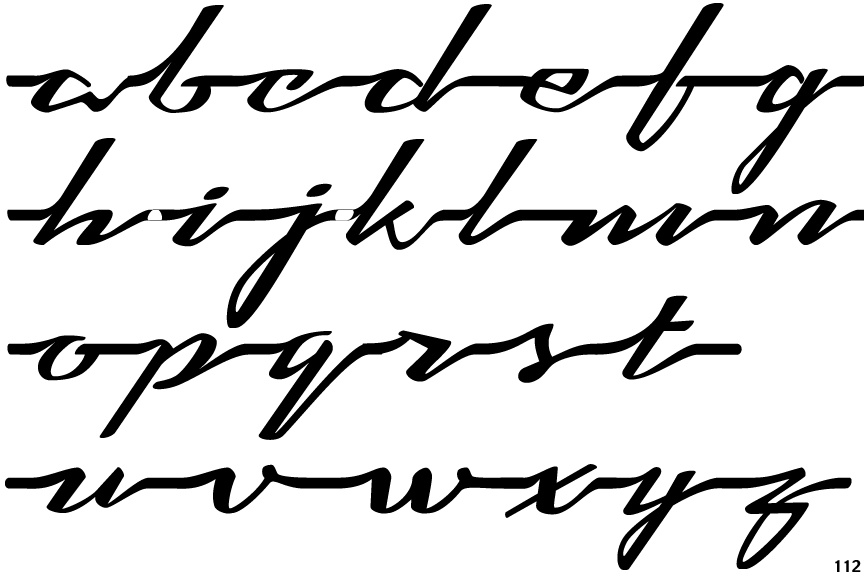 abcdefg
hijklmn
opqrst
uvwxyz
112